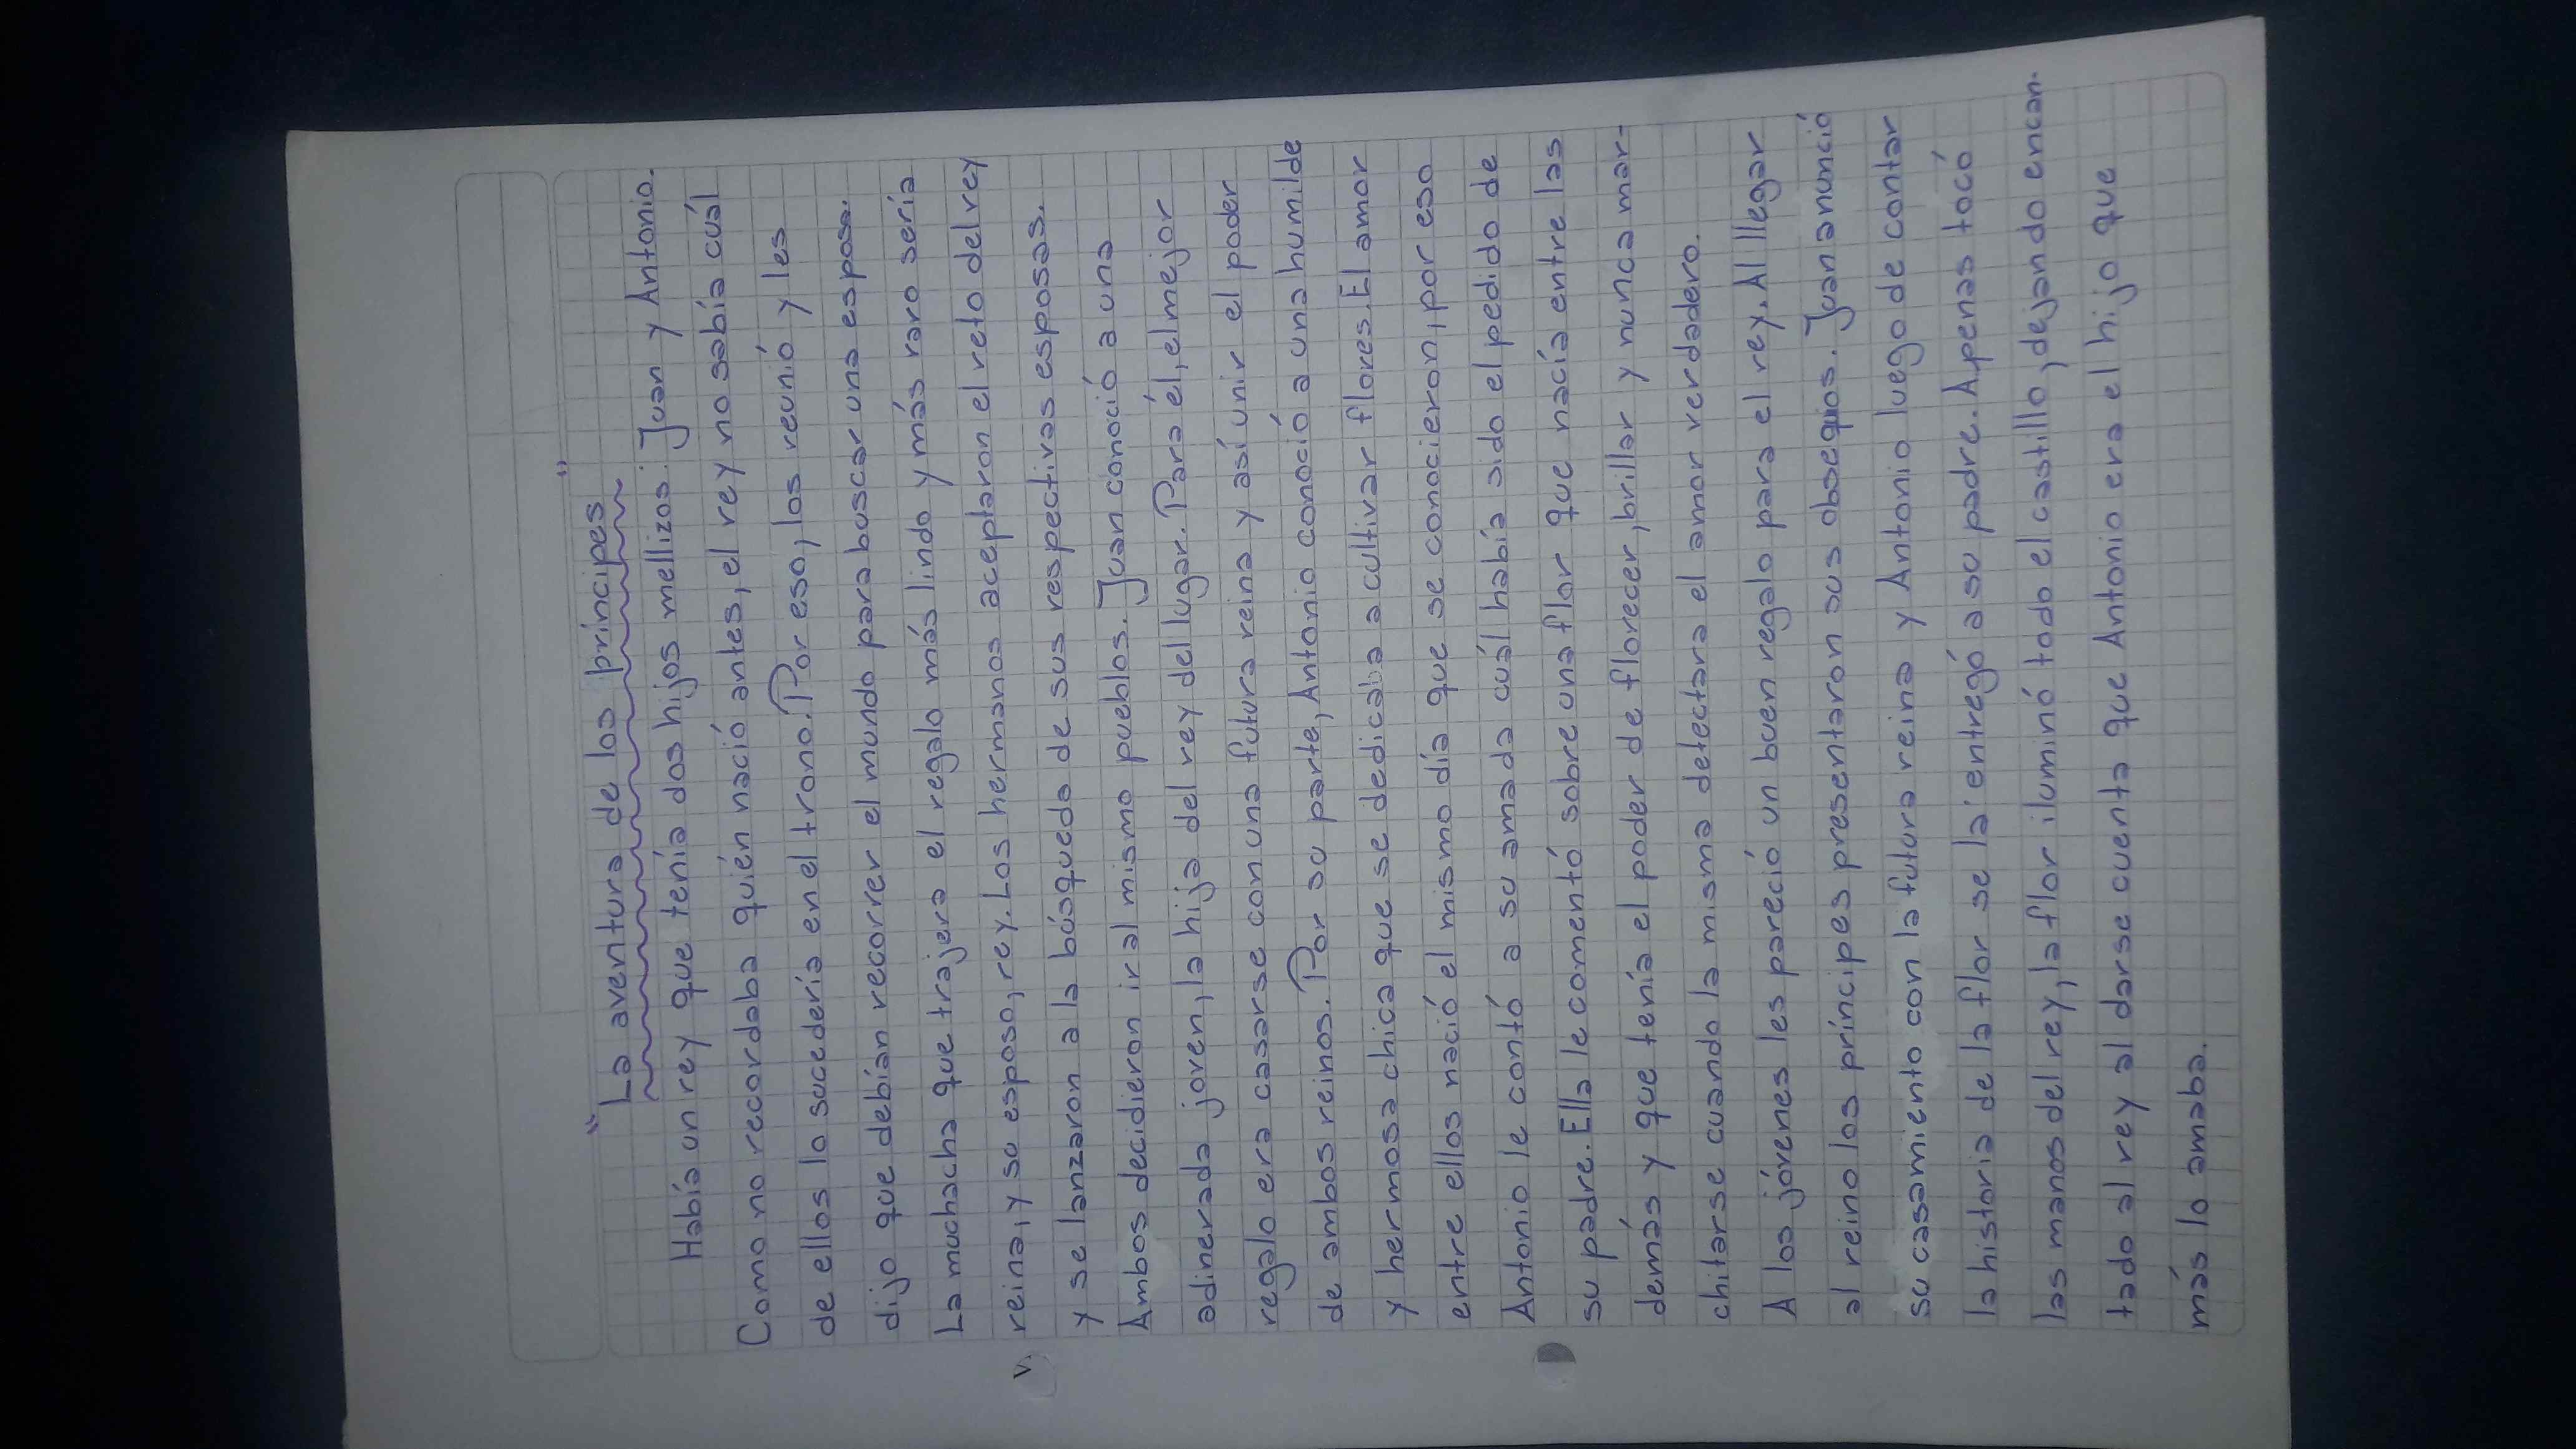 "La aventura de los príncipes"
Había un rey que tenía dos hijos mellizos: Juan y Antonio.
Como no recordaba quién nació antes, el rey no sabía cuál
de ellos lo sucedería en el trono. Por eso, los reunió y les
dijo que debían recorrer el mundo para buscar una esposa.
La muchacha que trajera el regalo más lindo y más raro sería
reina, y su esposo, rey. Los hermanos aceptaron el reto del rey
y se lanzaron a la búsqueda de sus respectivas esposas.
Ambos decidieron ir al mismo pueblos. Juan conoció a una
adinerada joven, la hija del rey del lugar. Para él, el mejor
regalo era casarse con una futura reina y así unir el poder
de ambos reinos. Por su parte, Antonio conoció a una humilde
y hermosa chica que se dedicaba a cultivar flores. El amor
entre ellos nació el mismo día que se conocieron, por eso
Antonio le contó a su amada cuál había sido el pedido de
su padre. Ella le comentó sobre una flor que nacía entre las
demás y que tenía el poder de florecer, brillar y nunca mar-
chitarse cuando la misma detectara el amor verdadero.
A los jóvenes les pareció un buen regalo para el rey. Al llegar
al reino los príncipes presentaron sus obsequios. Juan anunció
su casamiento con la futura reina y Antonio luego de contar
la historia de la flor se la entregó a su padre. Apenas tocó
las manos del rey, la flor iluminó todo el castillo, dejando encan-
tado al rey al darse cuenta que Antonio era el hijo que
más lo amaba.